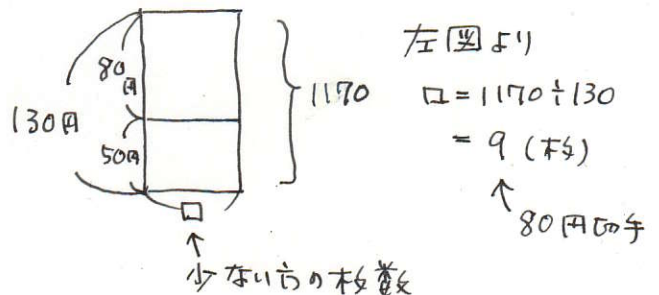 130円
80円
50円
1170
□
↑
少ない方の枚数
左図より
□=1170÷130
= 9 (枚)
↑
80円切手